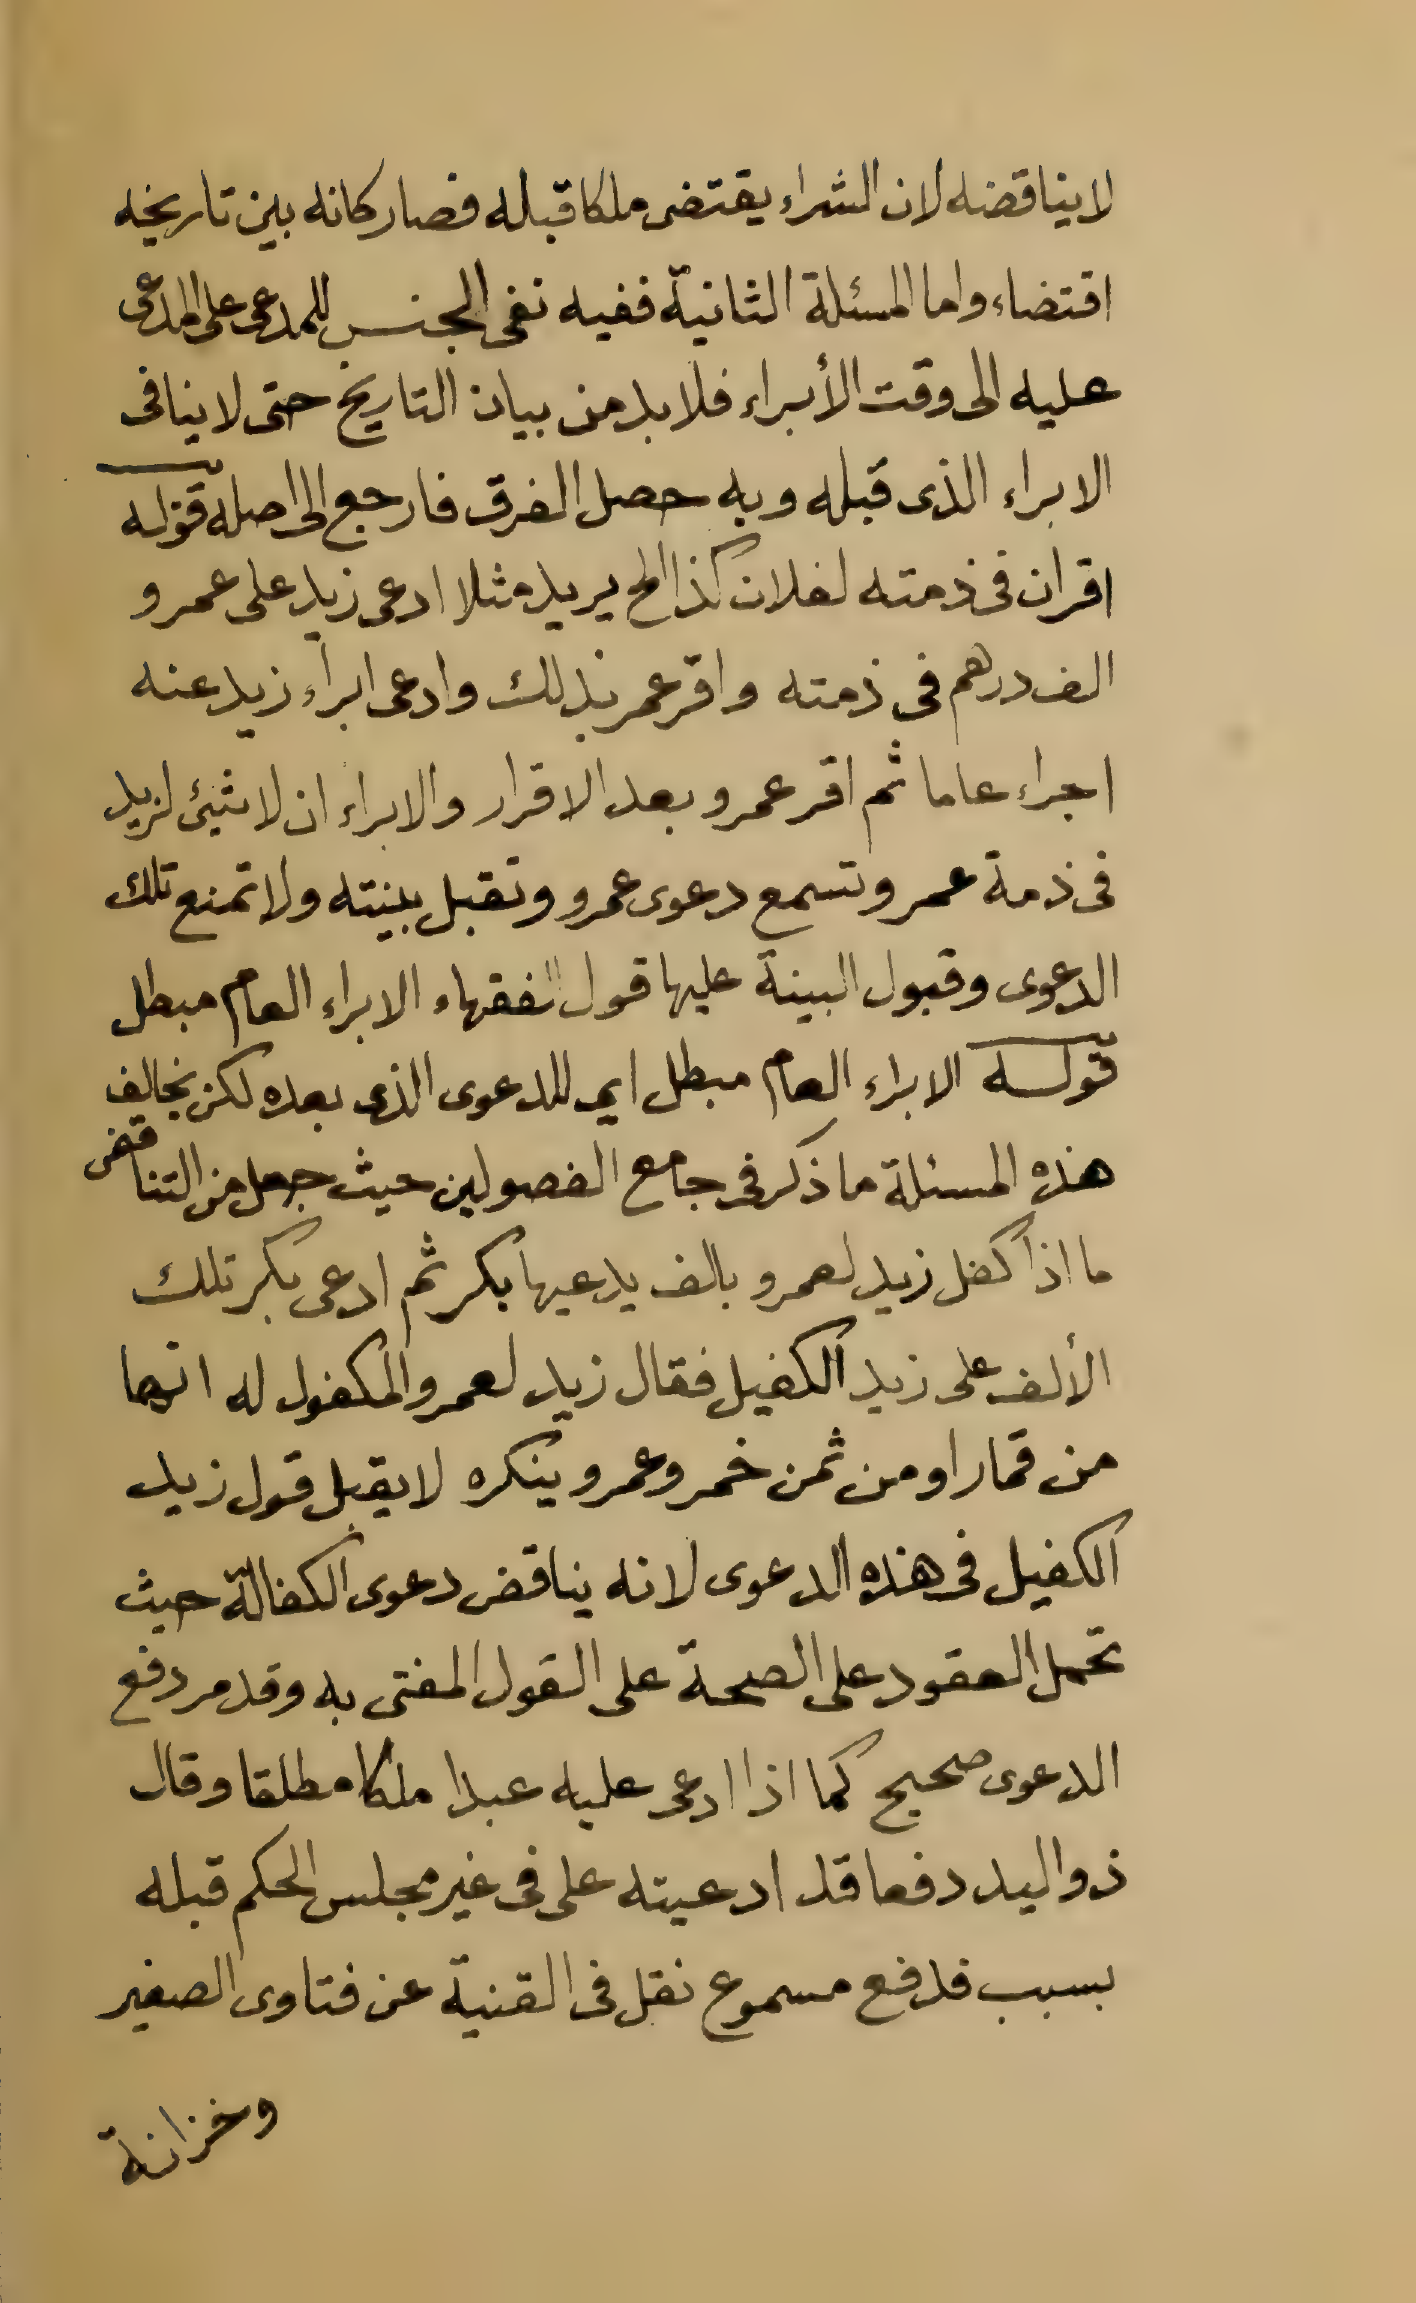 لا يناقضه لان الشراء يقتضى ملكا قبله فصار كانه بين تاريخه
اقتضاء واما المسئلة الثانية ففيه نفى الجنس للمدعى على المدعى
عليه الى وقت الأبراء فلا بد من بيان التاريخ حتى لا ينافى
الابراء الذى قبله وبه حصل الفرق فارجع الى اصله قوله
اقران فى ذمته لفلان كذا الخ يريد مثلا ادعى زيد على عمرو
الف درهم فى ذمته واقر عمر بذلك وادعى ابراء زيد عنه
اجراء عاما ثم اقر عمرو بعد الاقرار والابراء ان لا شيئ لزيد
فى ذمة عمر وتسمع دعوى عمرو وتقبل بينته ولا تمنع تلك
الدعوى وقبول البينة عليها قول الفقهاء الابراء العام مبطل
قوله الابراء العام مبطل اى للدعوى الذى بعده لكن يخالف
هذه المسئلة ما ذكر فى جامع الفصولين حيث جعل من التناقض
ما اذا كفل زيد لعمرو بالف يدعيها بكر ثم ادعى بكر تلك
الألف على زيد الكفيل فقال زيد لعمرو المكفول له انهما
من قمار او من ثمن خمر وعمرو ينكره لا يقبل قول زيد
الكفيل فى هذه الدعوى لانه يناقض دعوى الكفالة حيث
تحمل العقود على الصحة على القول المفتى به وقد مر دفع
الدعوى صحيح كما اذا ادعى عليه عبدا ملكا مطلقا وقال
ذو اليد دفعا قد ادعيته على فى غير مجلس الحكم قبله
بسبب فدفع مسموع نقل فى القنية عن فتاوى الصغير
وخزانة